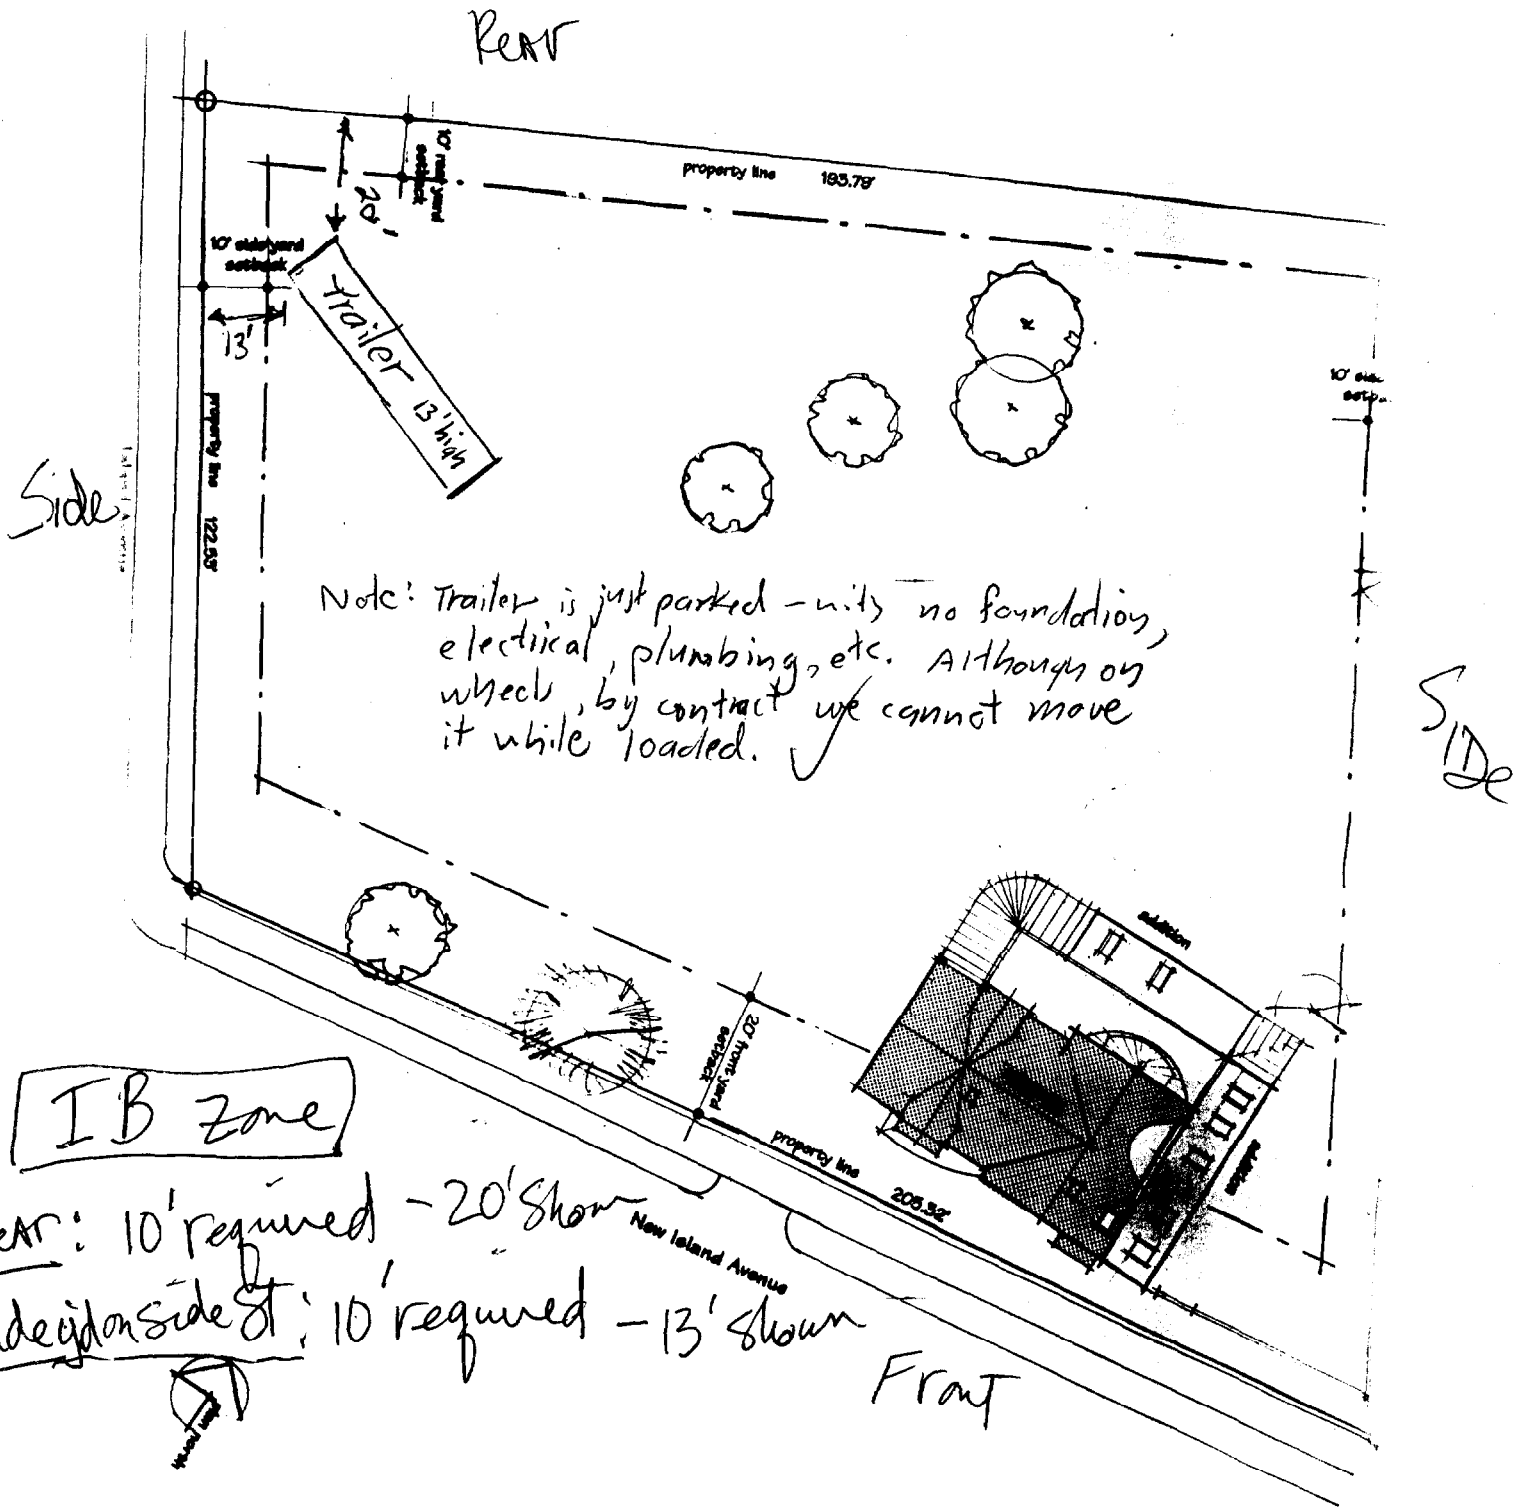 Rear
10' rear yard
setback
property line 193.79'
20'
10' side yard
setback
13'
Trailer 13' high
10' side
Side
property line 122.53'
Note: Trailer is just parked - with no foundation,
electrical, plumbing, etc. Although on
wheels, by contract we cannot move
it while loaded.
SIDe
addition
20' front yard
setback
addition
property line 205.32'
New Island Avenue
IB zone
10' required - 20' Shown
side St: 10' required - 13' Shown
Front
plan north